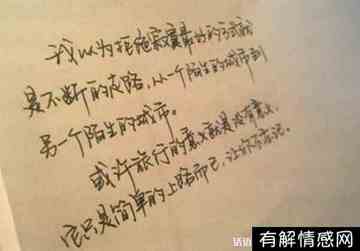 我以为拒绝寂寞最好的方式就
是不断的走路，从一个陌生的城市到
另一个陌生的城市。
或许旅行的意义就是没有意义，
它只是简单的上路而已，让你忘记。
有解情感网